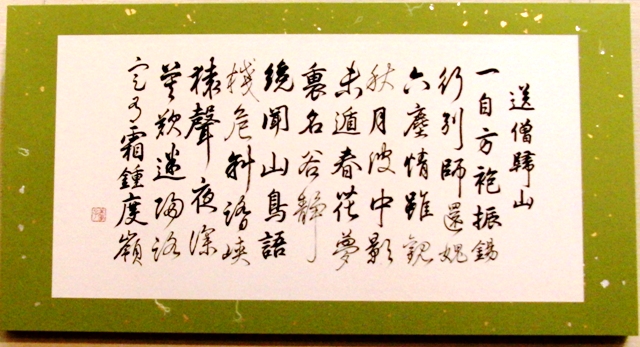 送僧歸山
一自方袍振錫
行別師還媿
六塵情雖觀
秋月波中影
未遁春花夢
裏名谷靜
纔聞山鳥語
棧危斜踏峽
猿聲夜深
莫歎迷歸路
定有霜鍾度嶺